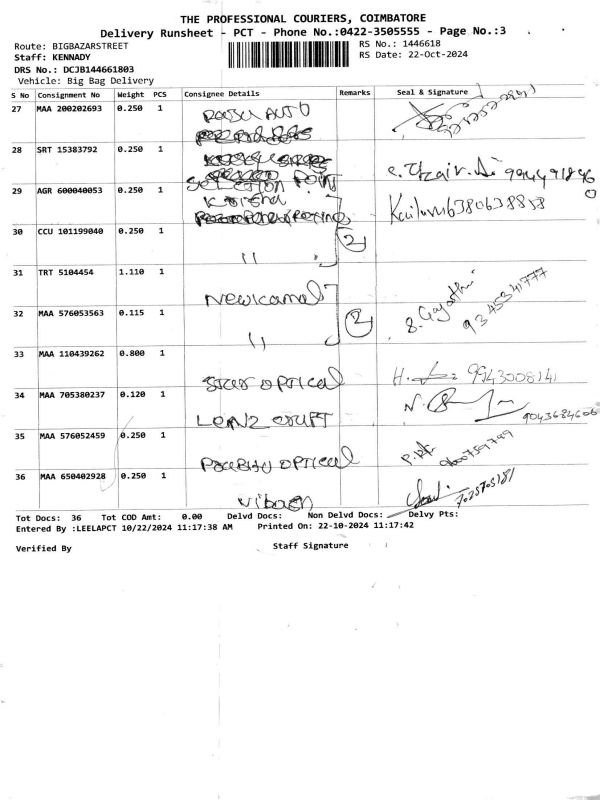 THE PROFESSIONAL COURIERS, COIMBATORE
Delivery Runsheet - PCT - Phone No.:0422-3505555 - Page No.:3
Route: BIGBAZARSTREET
RS No.: 1446618
Staff: KENNADY
RS Date: 22-Oct-2024
DRS No.: DCJB144661803
Vehicle: Big Bag Delivery
S No Consignment No Weight PCS Consignee Details Remarks Seal & Signature
27 MAA 200202693 0.250 1
AUTO
28 SRT 15383792 0.250 1
SELECTION POINT
29 AGR 600040053 0.250 1
Krisha
30 CCU 101199040 0.250 1
2
"
31 TRT 5104454 1.110 1
Newkamal
9345341777
32 MAA 576053563 0.115 1
2
S. Gayathri
"
33 MAA 110439262 0.800 1
Star optical H. 9943008141
34 MAA 705380237 0.120 1
N.
LENZ COURT 9043684606
35 MAA 576052459 0.250 1
OPTICAL
36 MAA 650402928 0.250 1
Vibaen
Tot Docs: 36 Tot COD Amt: 0.00 Delvd Docs: Non Delvd Docs: Delvy Pts:
Entered By :LEELAPCT 10/22/2024 11:17:38 AM Printed On: 22-10-2024 11:17:42
Verified By Staff Signature